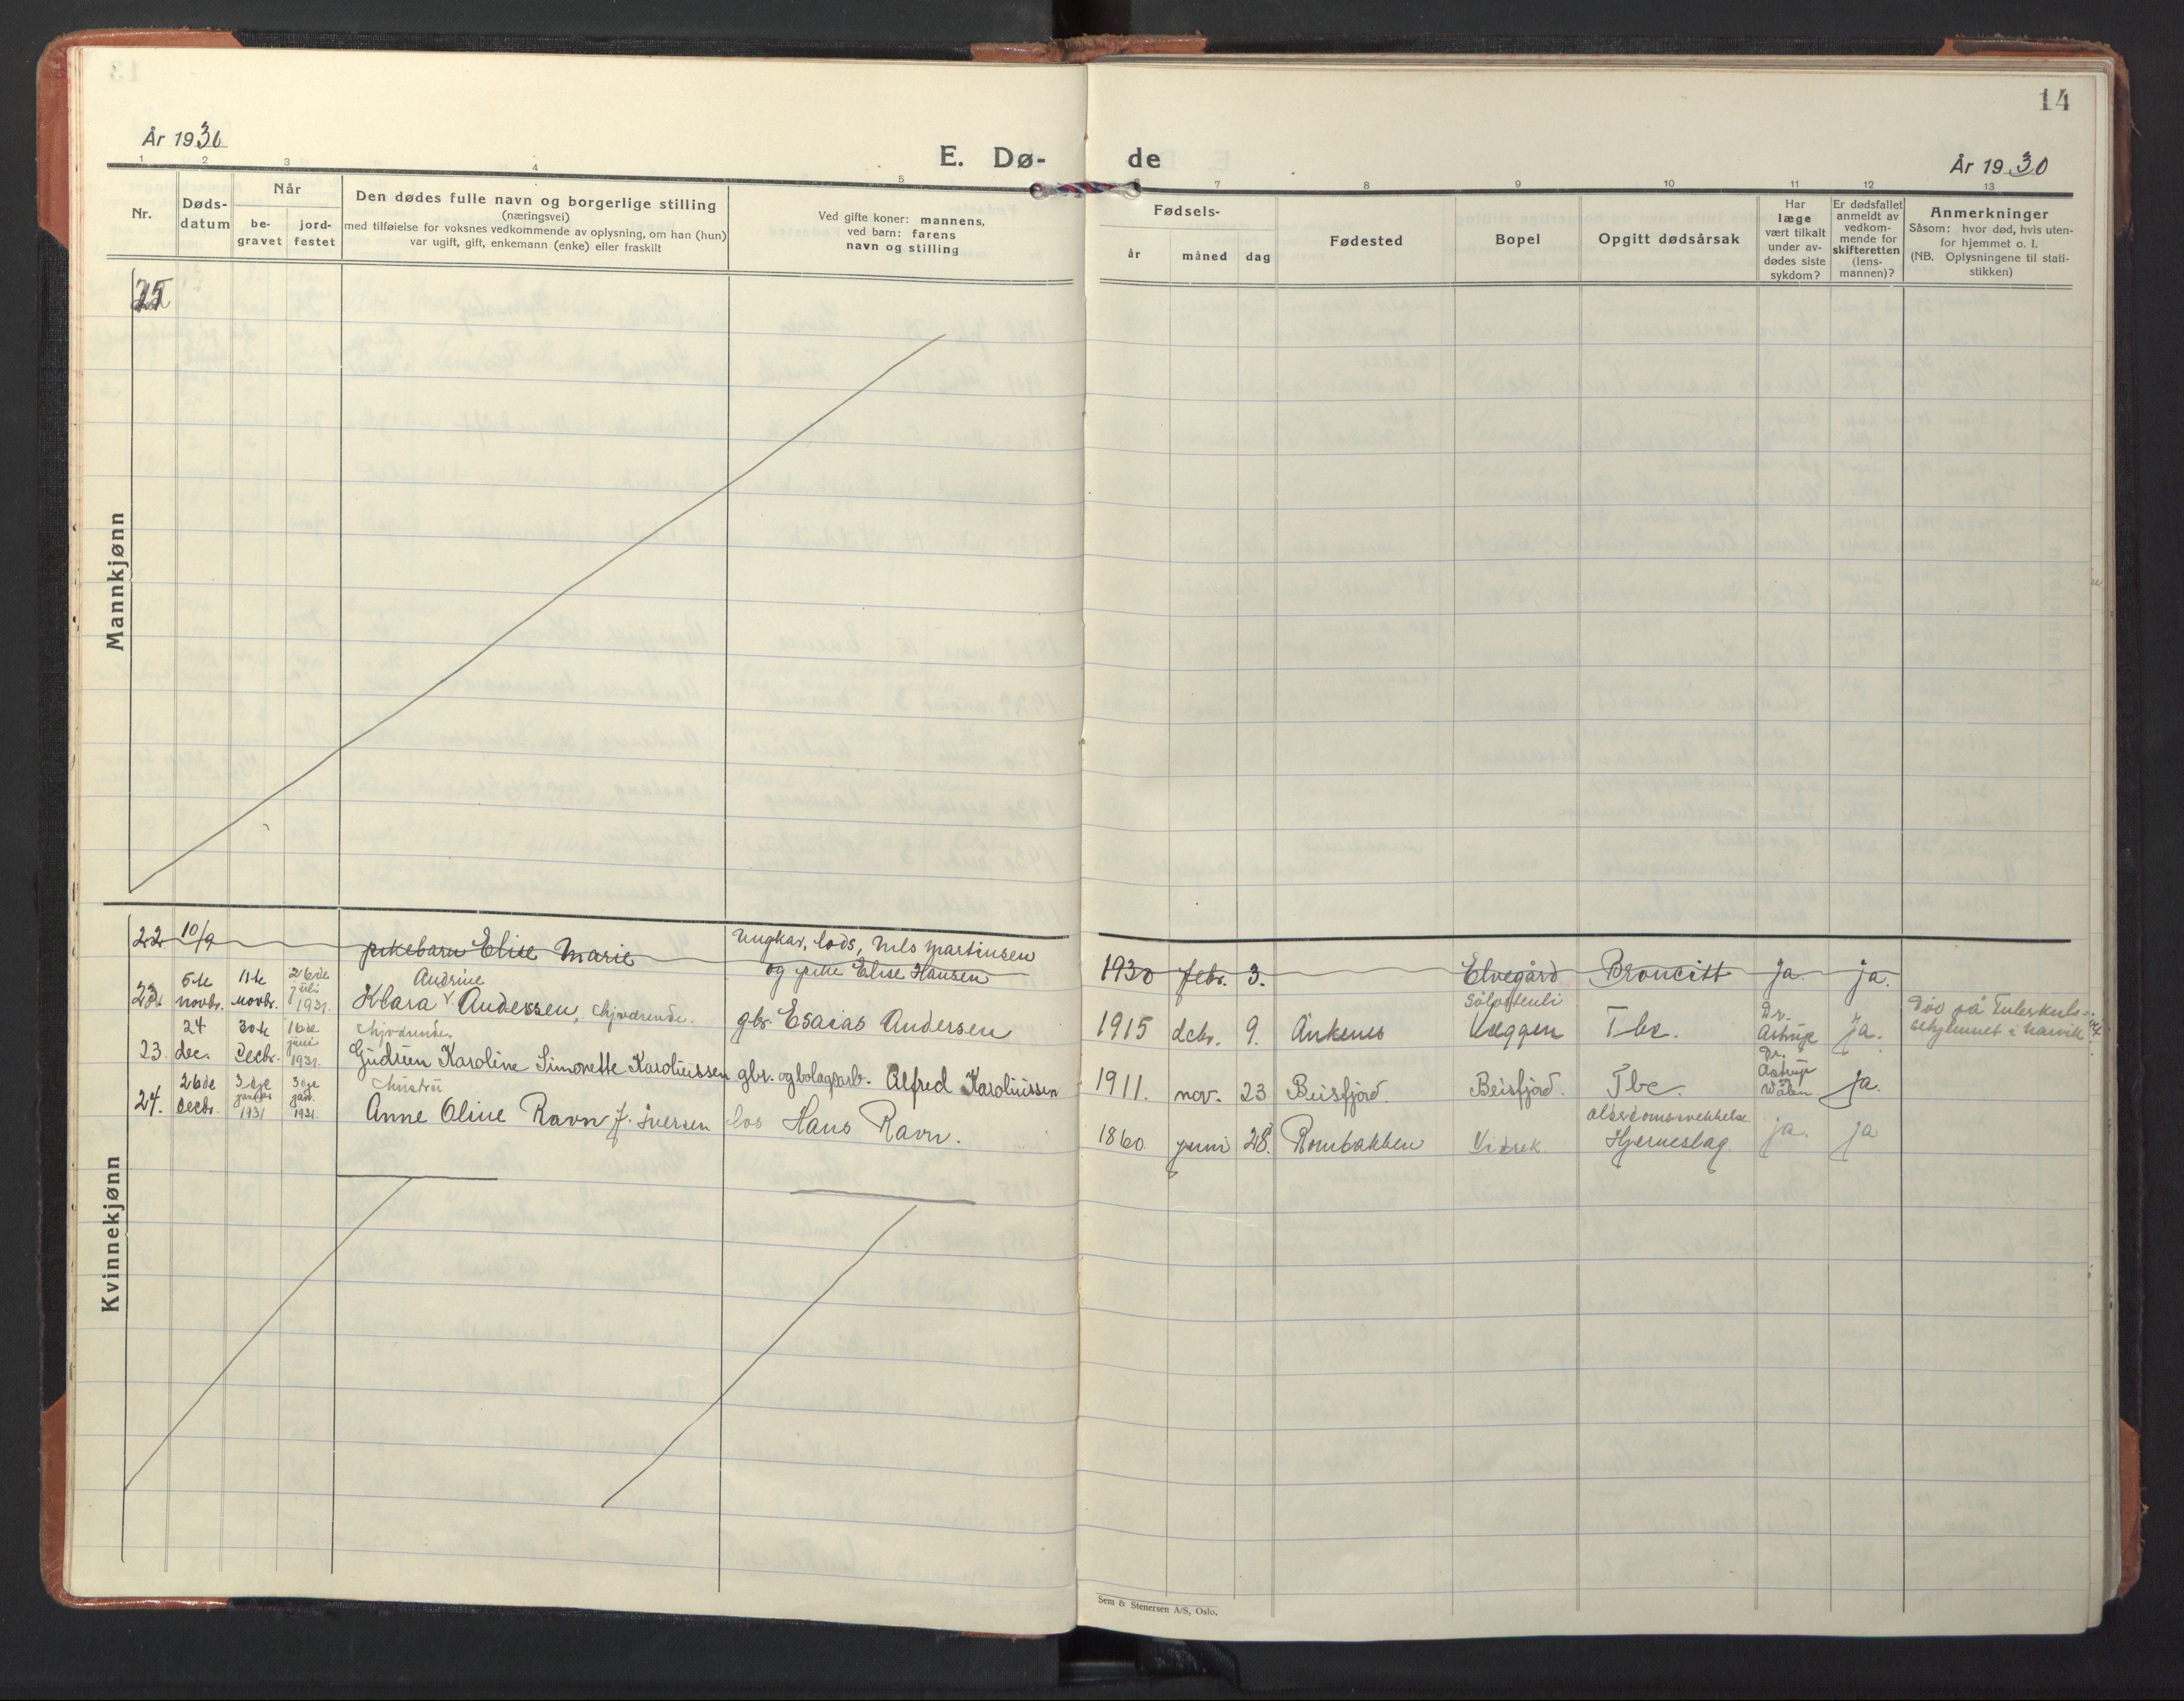 14
År 1930
E. Dø-
de
År 1930
1 2 3 4 5 6 7 8 9 10 11 12 13
Nr.
Døds-
datum
Når
be-
gravet
jord-
festet
Den dødes fulle navn og borgerlige stilling
(næringsvei)
med tilføielse for voksnes vedkommende av oplysning, om han (hun)
var ugift, gift, enkemann (enke) eller fraskilt
Ved gifte koner: mannens,
ved barn: farens
navn og stilling
Fødsels-
år måned dag
Fødested
Bopel
Opgitt dødsårsak
Har
læge
vært tilkalt
under av-
dødes siste
sykdom?
Er dødsfallet
anmeldt av
vedkom-
mende for
skifteretten
(lens-
mannen)?
Anmerkninger
Såsom: hvor død, hvis uten-
for hjemmet o. l.
(NB. Oplysningene til stati-
stikken)
Mannkjønn
25
Kvinnekjønn
22 10/9 pikebarn Elise Marie
Ungkar, lods, Nils Martinsen
og pike Elise Hansen
1930 febr. 3. Elvegård Broncitt Ja. ja.
5te novbr. 11te novbr. 26de juli 1931.
Andrine
Klara V Anderssen, hjvdrende.
gbr. Esaias Andersen
1915 dcbr. 9. Ankenes
Væggen Tbc. Dr. Astrup Ja.
Død på Tuberkulo-
sehjemmet i Narvik
23. 24 dec. 30te Decbr. 16de juni 1931.
hjvdrende.
Gudrun Karoline Simonette Karoliussen
gbr. og bolagsarb. Alfred Karoliussen
1911. nov. 23 Beisfjord. Beisfjord. Tbc. Dr. Astrup ja.
24. 26de Decbr. 3dje januar 1931 3dje jan. 1931.
hustru
Anne Oline Ravn f. Iversen
los Hans Ravn.
1860. juni 28. Rombakken Vidrek
alderdomssvekkelse
Hjerneslag ja. ja
Sem & Stenersen A/S, Oslo.